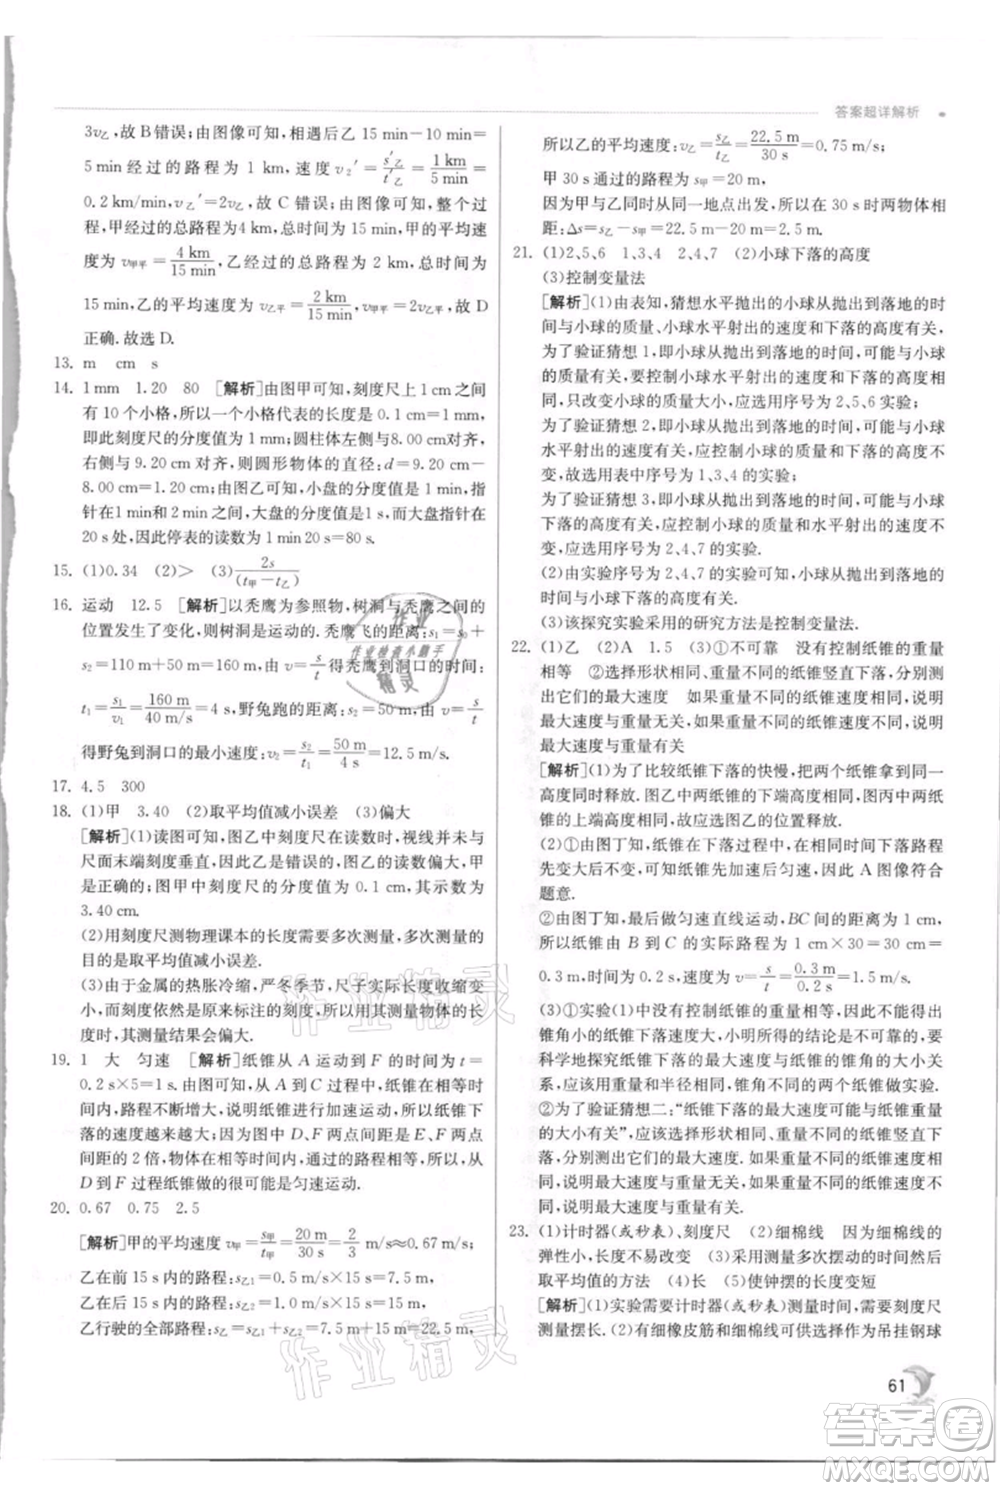 答案超详解析
3v乙,故 B 错误;由图像可知,相遇后乙 15 min-10 min=
5 min 经过的路程为 1 km,速度 v₂′=s′乙/t′乙=1 km/5 min=
0.2 km/min,v乙′=2v乙,故 C 错误;由图像可知,整个过程
中,甲经过的总路程为 4 km,总时间为 15 min,甲的平均速
度为 v甲平=4 km/15 min,乙经过的总路程为 2 km,总时间为
15 min,乙的平均速度为 v乙平=2 km/15 min,v甲平=2v乙平,故 D
正确.故选 D.
13. m cm s
14. 1 mm 1.20 80 [解析]由图甲可知,刻度尺上 1 cm 之间
有 10 个小格,所以一个小格代表的长度是 0.1 cm=1 mm,
即此刻度尺的分度值为 1 mm;圆柱体左侧与8.00 cm对齐,
右侧与 9.20 cm 对齐,则圆形物体的直径:d=9.20 cm-
8.00 cm=1.20 cm;由图乙可知,小盘的分度值是 1 min,指
针在1 min和2 min之间,大盘的分度值为1 s,而大盘指针在
20 s 处,因此停表的读数为 1 min 20 s=80 s.
15. (1)0.34 (2)> (3)2s/(t甲-t乙)
16. 运动 12.5 [解析]以秃鹰为参照物,树洞与秃鹰之间的
位置发生了变化,则树洞是运动的.秃鹰飞的距离:s₁=s₀+
s₂=110 m+50 m=160 m,由 v=s/t得秃鹰到洞口的时间:
t₁=s₁/v₁=160 m/40 m/s=4 s,野兔跑的距离:s₂=50 m,由 v=s/t
得野兔到洞口的最小速度:v₂=s₂/t₁=50 m/4 s=12.5 m/s.
17. 4.5 300
18. (1)甲 3.40 (2)取平均值减小误差 (3)偏大
[解析](1)读图可知,图乙中刻度尺在读数时,视线并未与
尺面末端刻度垂直,因此乙是错误的.图乙的读数偏大,甲
是正确的.图甲中刻度尺的分度值为 0.1 cm,其示数为
3.40 cm.
(2)用刻度尺测物理课本的长度需要多次测量,多次测量的
目的是取平均值减小误差.
(3)由于金属的热胀冷缩,严冬季节,尺子实际长度收缩变
小,而刻度依然是原来标注的刻度值,所以测量值大于实际
值,其测量结果会偏大.
19. 1 大 匀速 [解析]纸锥从 A 运动到 F 的时间为 t=
0.2 s×5=1 s.由图可知,从 A 到 C 过程中,纸锥在相等时
间内,路程不断增大,说明纸锥进行加速运动,所以纸锥下
落的速度越来越大;图中 D、F 两点间的距离约为 E、F 两点
间距的 2 倍,物体在相等时间内通过的路程相等,所以从
D 到 F 过程纸锥做的很可能是匀速运动.
20. 0.67 0.75 2.5
[解析]甲的平均速度:v甲=s甲/t甲=20 m/30 s=2/3 m/s≈0.67 m/s;
乙在前 15 s 内的路程:s乙1=0.5 m/s×15 s=7.5 m;
乙在后 15 s 内的路程:s乙2=1.0 m/s×15 s=15 m;
乙行驶的全部路程:s乙=s乙1+s乙2=7.5 m+15 m=22.5 m,
所以乙的平均速度:v乙=s乙/t乙=22.5 m/30 s=0.75 m/s;
甲 30 s 通过的路程为 s甲=20 m,
因为甲与乙同时从同一地点出发,所以在 30 s 时两物体相
距:Δs=s乙-s甲=22.5 m-20 m=2.5 m.
21. (1)2、5、6 1、3、4 2、4、7 (2)小球下落的高度
(3)控制变量法
[解析](1)由表知,猜想水平抛出的小球从抛出到落地的时
间与小球的质量、小球水平射出的速度和下落的高度有关,
为了验证猜想 1,即小球从抛出到落地的时间,可能与小球
的质量有关,要控制小球水平射出的速度和下落高度不变,
只改变小球的质量大小,应选用序号为 2、5、6 实验;
为了验证猜想 2,小球从抛出到落地的时间,可能与小球
水平射出的速度有关,应控制小球的质量和下落的高度不
变,故选用表中序号为 1、3、4 的实验;
为了验证猜想 3,小球从抛出到落地的时间,可能与小球
下落的高度有关,应控制小球的质量和水平射出的速度不
变,因此,应选用序号为 2、4、7 的实验.
(2)由实验数据可知,小球从抛出到落地的时间只与下落
的高度有关.
(3)该探究实验采用的研究方法为控制变量法.
22. (1)乙 (2)A 1.5 (3)①不可靠 没有控制纸锥的重量
相等 ②选择形状相同、重量不同的纸锥竖直下落,分别测
出它们的最大速度 如果重量不同的纸锥最大速度相等,说明
最大速度与重量无关,如果重量不同的纸锥最大速度不等,说
明最大速度与重量有关
[解析](1)为了比较纸锥下落的快慢,把两个纸锥拿到相
同的高度.图乙中两个纸锥的下端高度相同,图丙中两个纸
锥的上端高度相同,故应选图乙的位置由静止同时释放.
(2)①由图丁知,纸锥在下落过程中,在相等时间下落路程
先变大后不变,说明纸锥先加速后匀速,因此 A 图像符合
题意.
②由图丁知,最后做匀速直线运动,BC 间的距离为 1 cm,
所以纸锥由 B 到 C 的实际路程为 1 cm×30=30 cm=
0.3 m,时间为 0.2 s,速度为 v=s/t=0.3 m/0.2 s=1.5 m/s.
(3)①实验(1)没有控制纸锥的重量相等,所以不能得出纸
锥角小的纸锥下落速度大,小明得出的结论是不可靠的.要
科学地探究纸锥下落的最大速度与纸锥的锥角的大小关
系,应该选择重量和半径相同、锥角不同的纸锥做实验.
②为了验证猜想二:“纸锥下落的最大速度可能与纸锥重量
的大小有关”,应该选择形状相同、重量不同的纸锥竖直下落,
分别测出它们的最大速度.如果重量不同的纸锥最大速度相
等,说明最大速度与重量无关,如果重量不同的纸锥最大速度
不等,说明最大速度与重量有关.
23. (1)计时器(或秒表)、刻度尺 (2)细棉线 因为细棉线的
弹性小,长度不易改变 (3)采用测量多次摆动的时间然后
取平均值的方法 (4)长 (5)使钟摆的长度变短
[解析](1)实验需要计时器(或秒表)测量时间,需要刻度尺
测量摆长.(2)有细橡皮筋和细棉线可供选择作为吊挂钢球
61
作业
作业检查小助手
精灵
作业精灵
作业精灵
答案圈
MXQE.COM